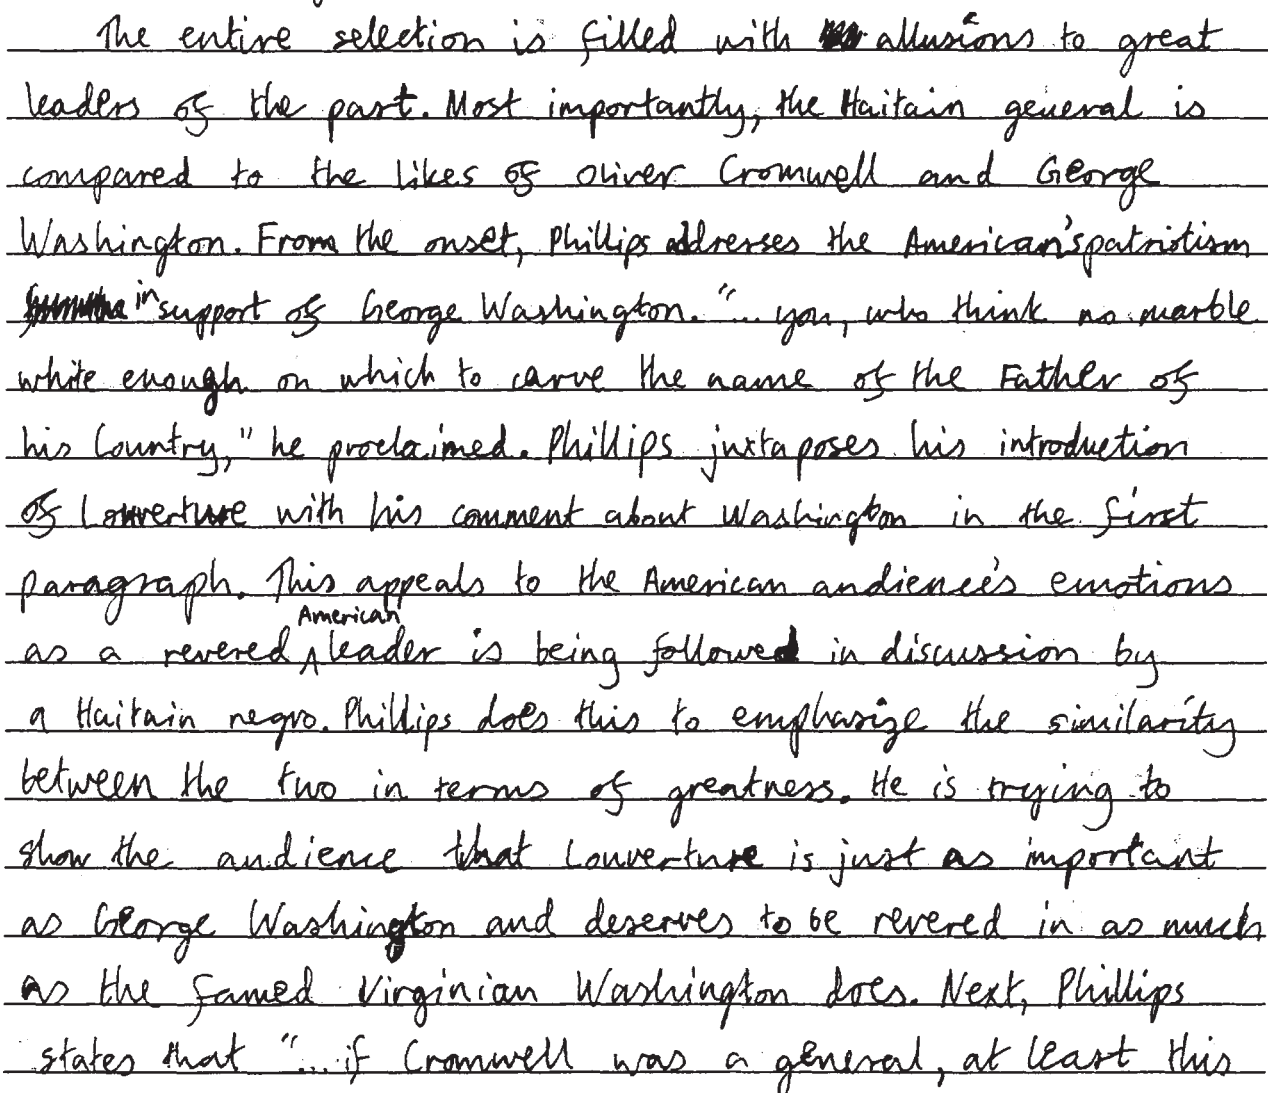 The entire selection is filled with allusions to great
leaders of the past. Most importantly, the Haitain general is
compared to the likes of Oliver Cromwell and George
Washington. From the onset, Phillips addresses the American's patriotism
in support of George Washington. "... you, who think no marble
white enough on which to carve the name of the Father of
his Country," he proclaimed. Phillips juxtaposes his introduction
of Louverture with his comment about Washington in the first
paragraph. This appeals to the American audience's emotions
as a revered American leader is being followed in discussion by
a Haitain negro. Phillips does this to emphasize the similarity
between the two in terms of greatness. He is trying to
show the audience that Louverture is just as important
as George Washington and deserves to be revered in as much
as the famed Virginian Washington does. Next, Phillips
states that "... if Cromwell was a general, at least this